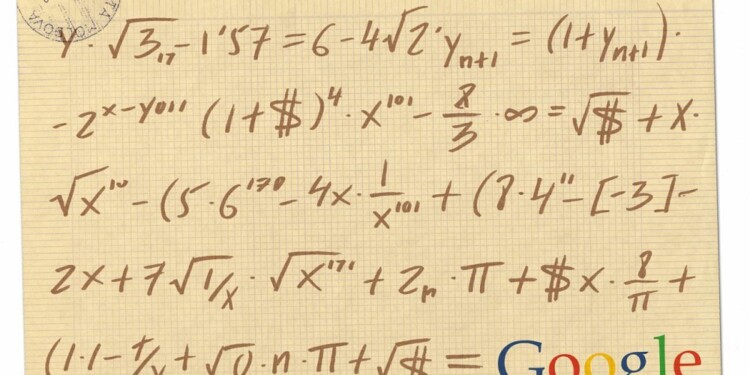 Y · √3,17 - 1'57 = 6 - 4√2 · yₙ₊₁ = (1 + yₙ₊₁) ·
- 2ˣ⁻ʸ⁰¹¹ (1 + $)⁴ · x¹⁰¹ - 8/3 · ∞ = √$ + x ·
√x¹⁰ - (5 · 6¹⁷⁰ - 4x · 1/x¹⁰¹ + (8 · 4¹¹ - [-3] -
2x + 7√1/x · √x¹⁷¹ + 2ₙ · π + $x · 8/π +
(1 · 1 - + √0 · n · π + √$ = Google